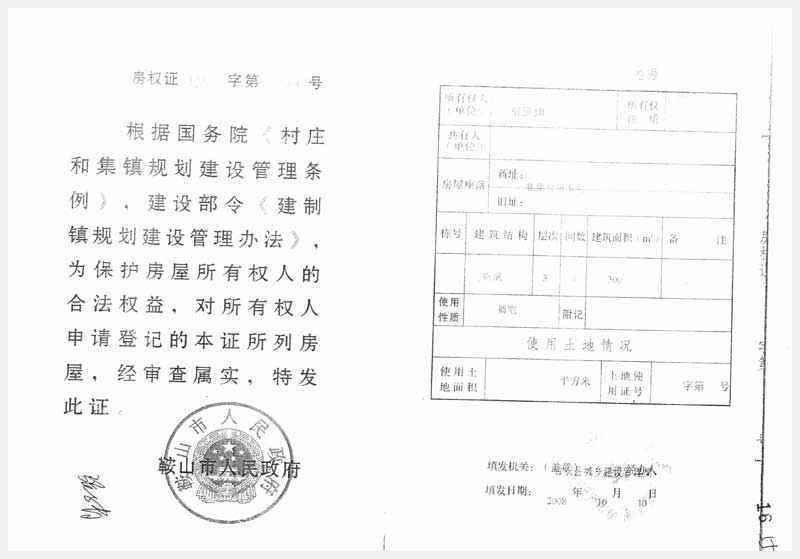 房权证 字第 号
根据国务院《村庄
和集镇规划建设管理条
例》，建设部令《建制
镇规划建设管理办法》，
为保护房屋所有权人的
合法权益，对所有权人
申请登记的本证所列房
屋，经审查属实，特发
此证。
鞍山市人民政府
鞍山市人民政府
所有权人
（单位）
所有权
性 质
共有人
（单位）
房屋座落
新址：
旧址：
栋号 建筑结构 层次 间数 建筑面积（m²） 备 注
3 300
使用
性质
住宅
附记
使用土地情况
使用土
地面积
平方米
土地使
用证号
字第 号
填发机关：（盖章）
城乡建设管理
填发日期： 2008 年 10 月 10 日
房权证
字第
号
16